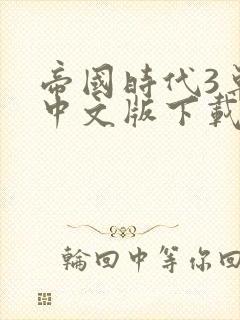 帝國時代3
中文版下載
輪回中等你回